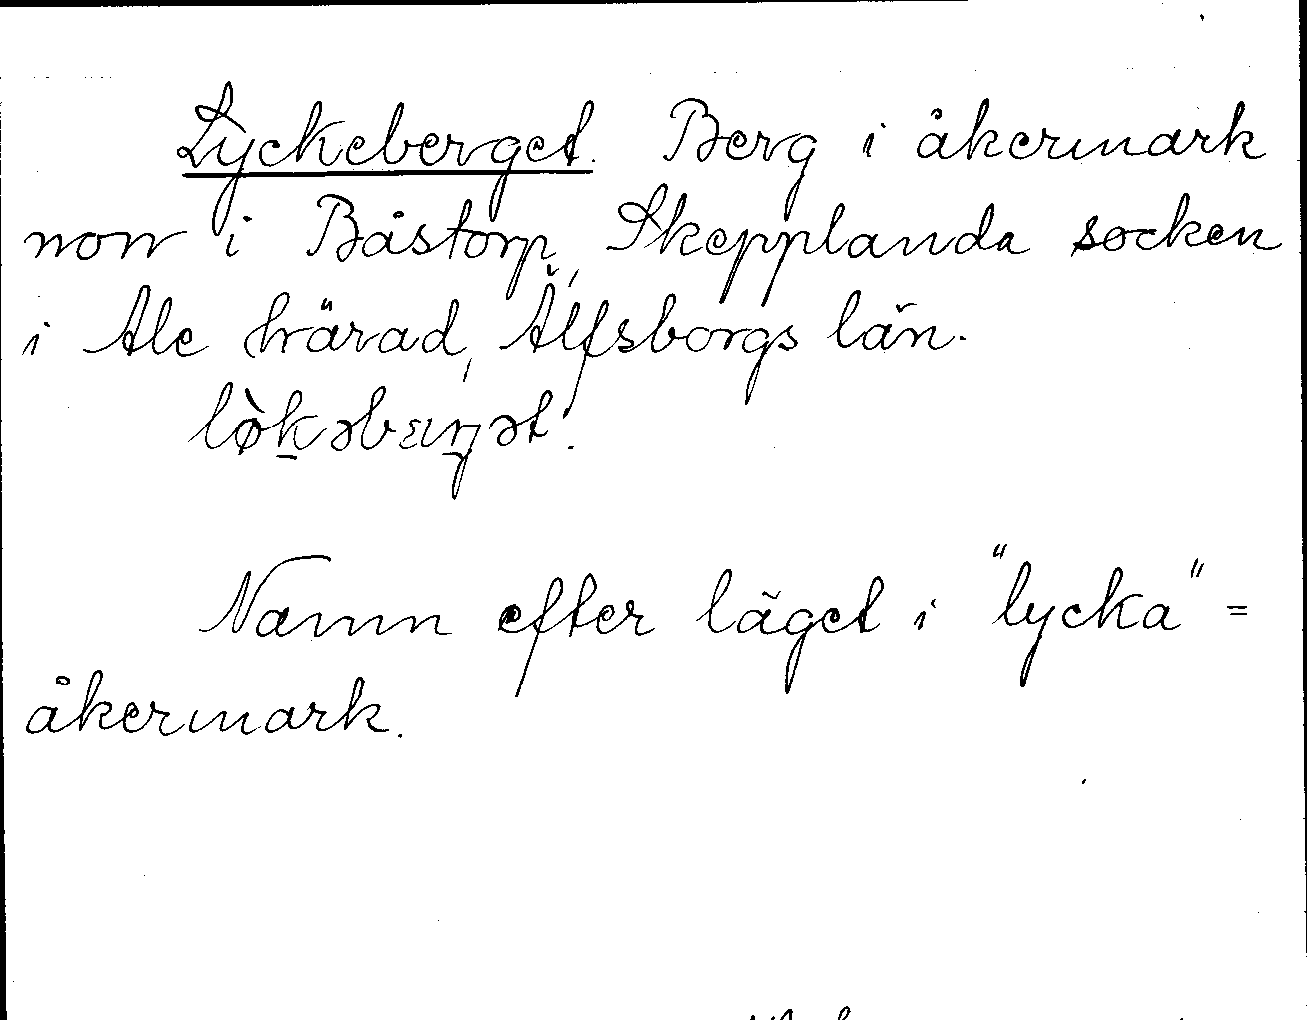 Lyckeberget. Berg i åkermark
norr i Båstorp, Skepplanda socken
i Ale härad, Älfsborgs län.
Namn efter läget i "lycka" =
åkermark.